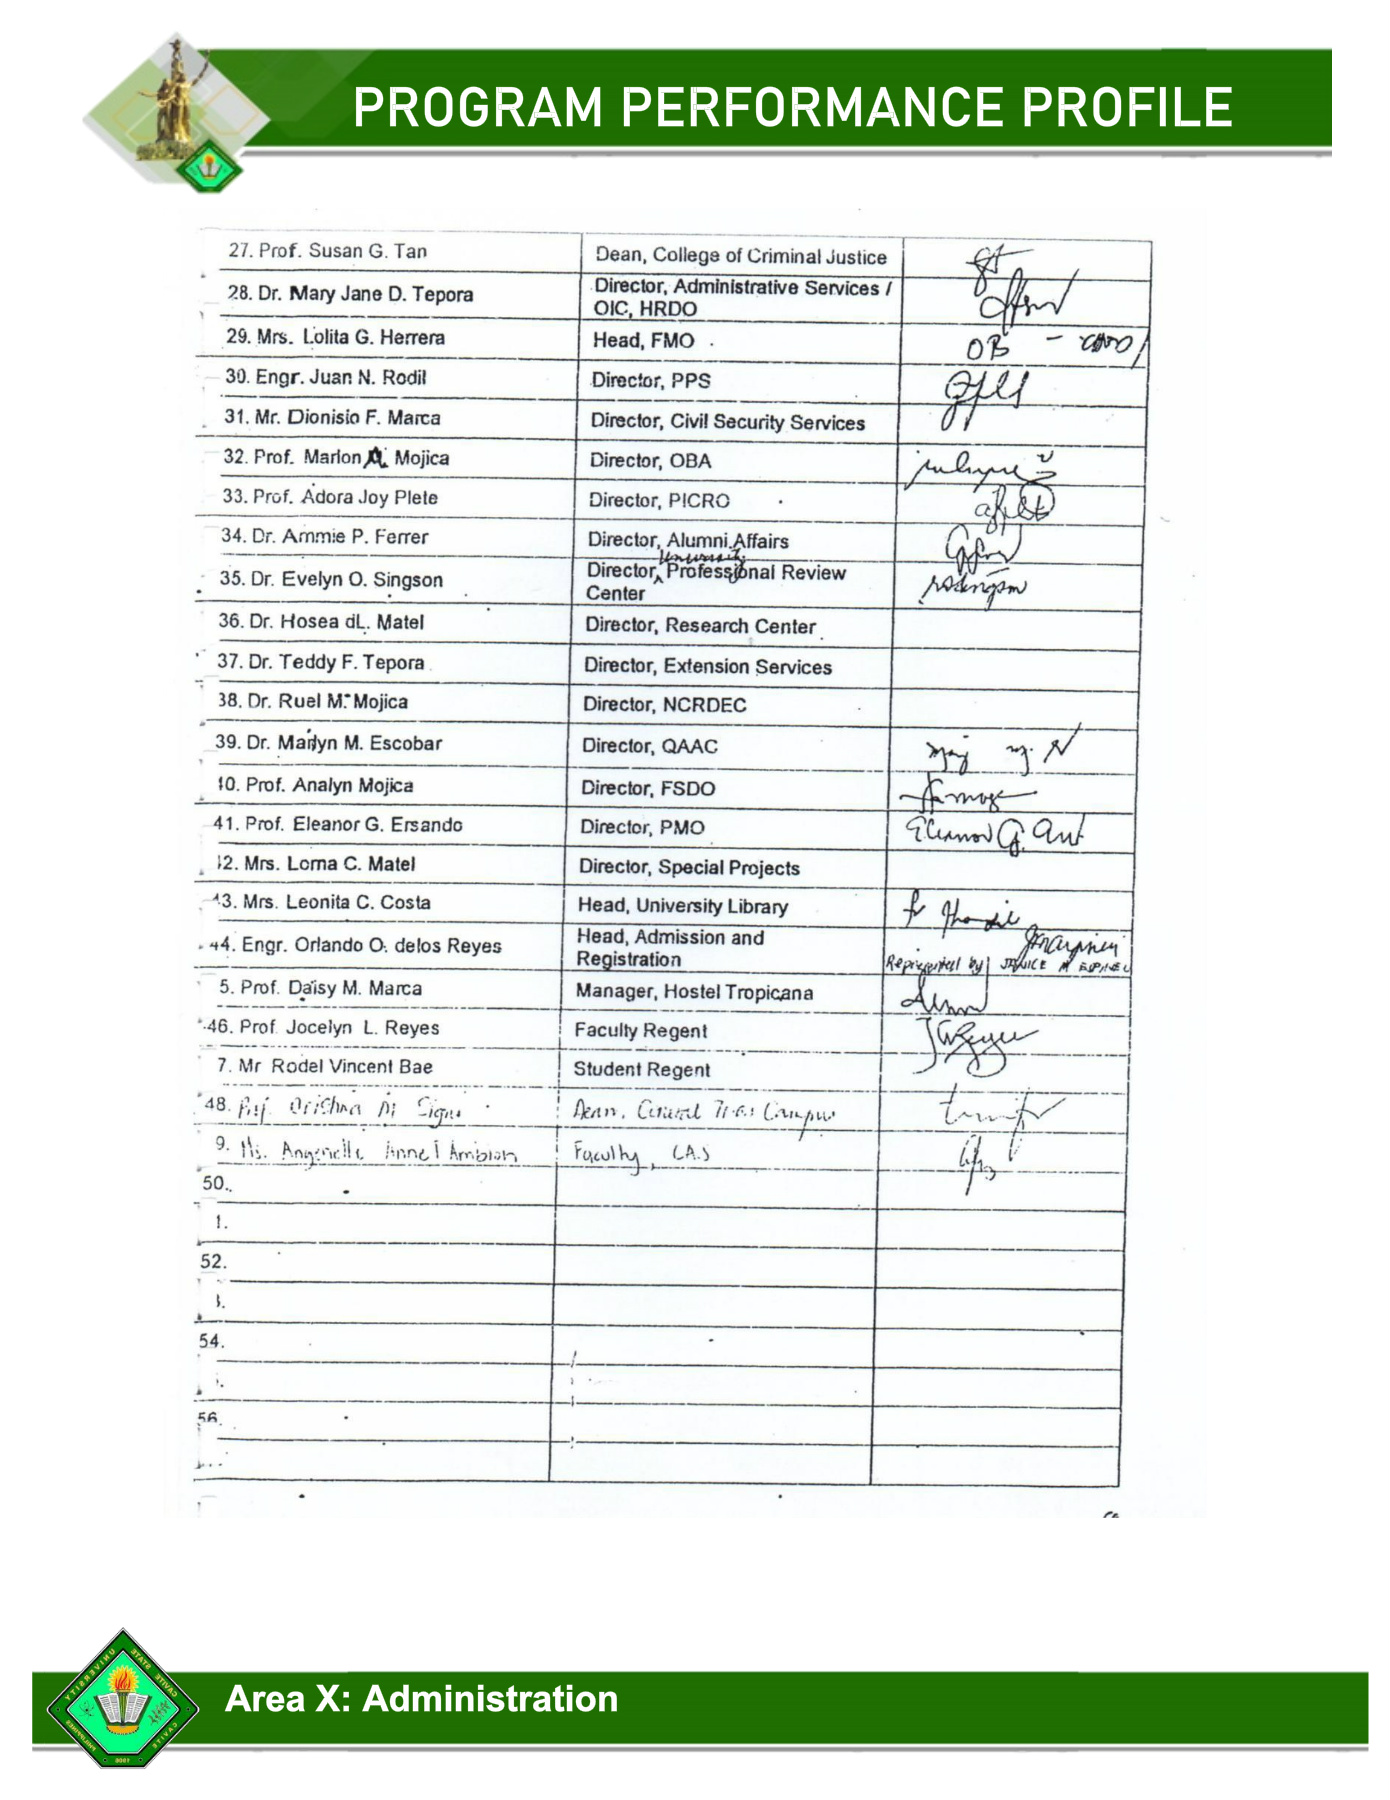 PROGRAM PERFORMANCE PROFILE
27. Prof. Susan G. Tan Dean, College of Criminal Justice
28. Dr. Mary Jane D. Tepora Director, Administrative Services /
OIC, HRDO
29. Mrs. Lolita G. Herrera Head, FMO OB
30. Engr. Juan N. Rodil Director, PPS
31. Mr. Dionisio F. Marca Director, Civil Security Services
32. Prof. Marlon A. Mojica Director, OBA
33. Prof. Adora Joy Plete Director, PICRO
34. Dr. Ammie P. Ferrer Director, Alumni Affairs
University
35. Dr. Evelyn O. Singson Director, Professional Review
Center
36. Dr. Hosea dL. Matel Director, Research Center
37. Dr. Teddy F. Tepora Director, Extension Services
38. Dr. Ruel M. Mojica Director, NCRDEC
39. Dr. Marilyn M. Escobar Director, QAAC
10. Prof. Analyn Mojica Director, FSDO
41. Prof. Eleanor G. Ersando Director, PMO Eleanor G.
12. Mrs. Lorna C. Matel Director, Special Projects
13. Mrs. Leonita C. Costa Head, University Library
44. Engr. Orlando O. delos Reyes Head, Admission and
Registration Represented by JANICE M ESPINELI
5. Prof. Daisy M. Marca Manager, Hostel Tropicana
46. Prof. Jocelyn L. Reyes Faculty Regent
7. Mr Rodel Vincent Bae Student Regent
48. Prof. Dean, General Trias Campus
9. Ms. Annel Ambion Faculty, CAS
50.
1.
52.
3.
54.
56.
Area X: Administration
CAVITE STATE UNIVERSITY
CAVITE
PHILIPPINES
1906